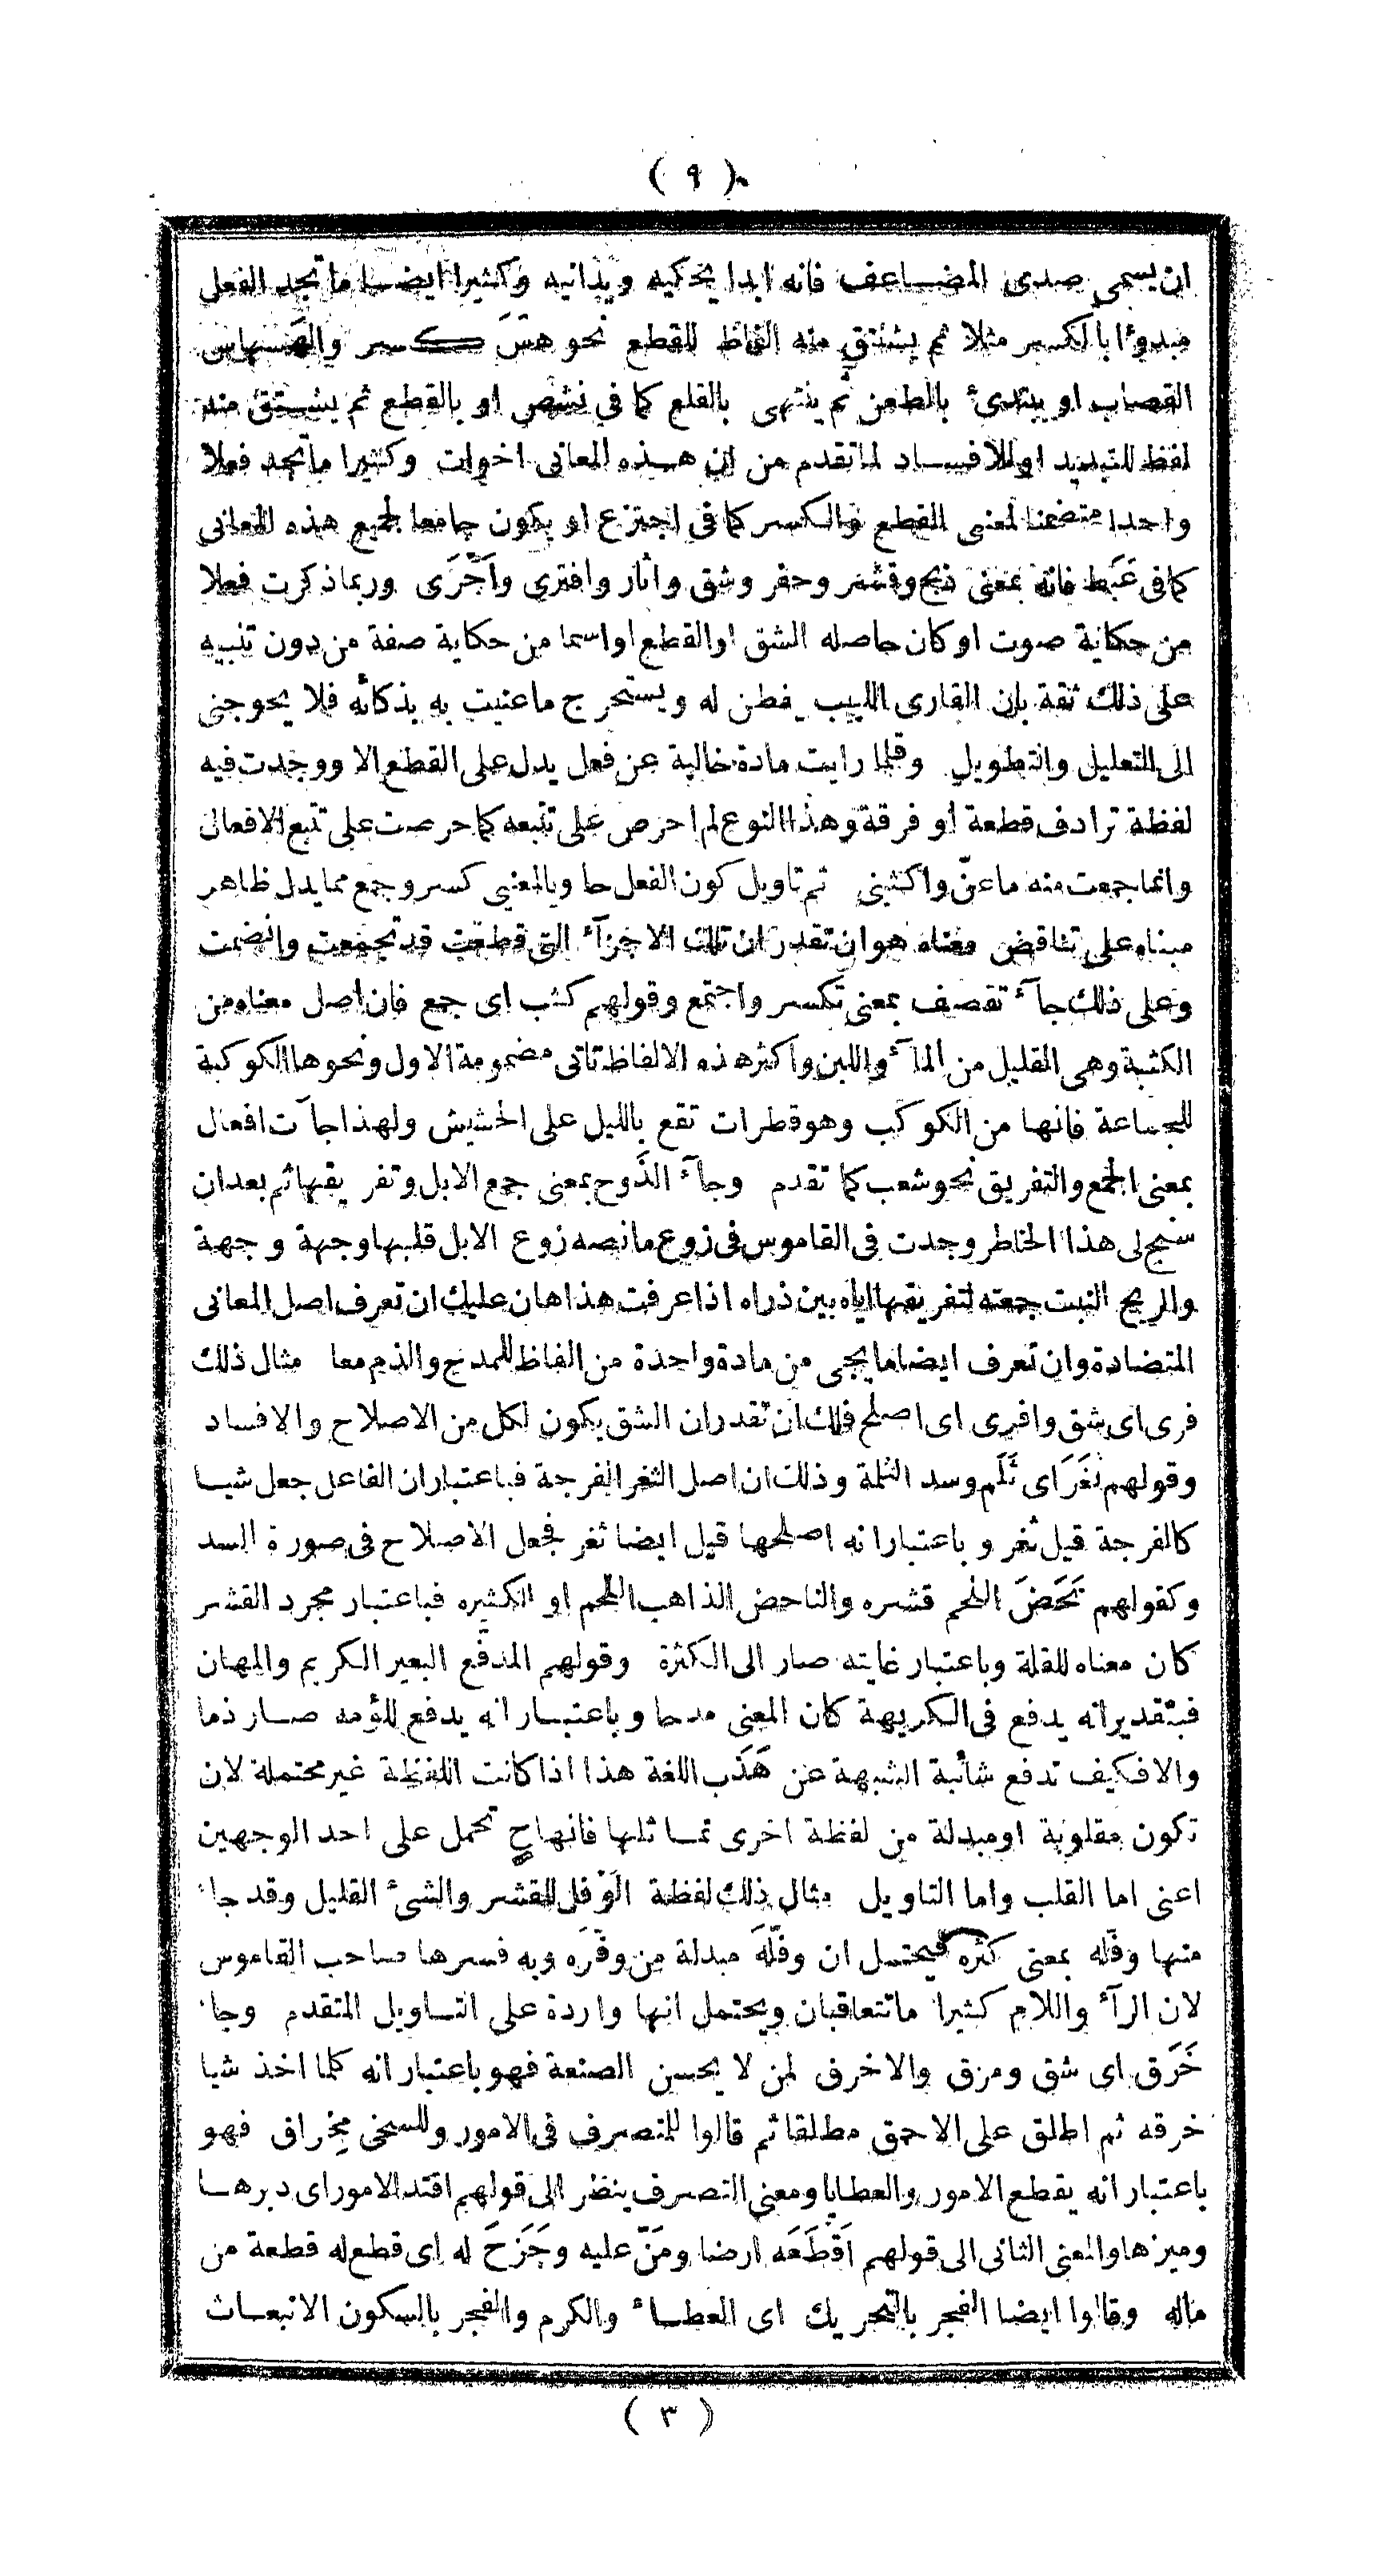 ( ٩ )
ان يسمى صدى المضاعف فانه ابدا يحكيه ويدانيه وكثيرا ايضا ما تجد الفعل
مبدوءا بالكسر مثلا ثم يشتق منه الفاظ للقطع نحو هسَّ كسر والهسهاس
القصاب او يبتدئ بالطعن ثم ينتهى بالقلع كما فى نشص او بالقطع ثم يشتق منه
لفظ للتبديد او للافساد لما تقدم من ان هذه المعانى اخوات وكثيرا ما تجد فعلا
واحدا متضمنا لمعنى القطع والكسر كما فى اجتزع او يكون جامعا لجميع هذه المعانى
كما فى عَبَط فانه بمعنى ذبح وقشر وحفر وشق واثار وافترى واَجْرَى وربما ذكرت فعلا
من حكاية صوت او كان حاصله الشق او القطع او اسما من حكاية صفة من دون تنبيه
على ذلك ثقة بان القارى اللبيب يفطن له ويستخرج ما عنيت به بذكائه فلا يحوجنى
الى التعليل والتطويل وقلما رايت مادة خالية عن فعل يدل على القطع الا ووجدت فيه
لفظة ترادف قطعة او فرقة وهذا النوع لم احرص على تتبعه كما حرصت على تتبع الافعال
وانما جمعت منه ما عنّ واكثبنى ثم تاويل كون الفعل حاويا لمعنى كسر وجمع مما يدل ظاهر
مبناه على تناقض معناه هو ان تقدر ان تلك الاجزآء التى قطعت قد تجمعت وانضمت
وعلى ذلك جآء تقصف بمعنى تكسر واجتمع وقولهم كثب اى جمع فان اصل معناه من
الكثبة وهى القليل من المآء واللبن واكثر هذه الالفاظ تاتى مضمومة الاول ونحوها الكوكبة
للجماعة فانها من الكوكب وهو قطرات تقع بالليل على الحشيش ولهذا جآءت افعال
بمعنى الجمع والتفريق نحو شعب كما تقدم وجآء الذَوح بمعنى جمع الابل وتفريقها ثم بعد ان
سنح لى هذا الخاطر وجدت فى القاموس فى زوع ما نصه زوع الابل قلبها وجهة وجهة
والريح النبت جمعته لتفريقها اياه بين ذراه اذا عرفت هذا هان عليك ان تعرف اصل المعانى
المتضادة وان تعرف ايضا ما يجى من مادة واحدة من الفاظ للمدح والذم معا مثال ذلك
فرى اى شق وافرى اى اصلح فلك ان تقدر ان الشق يكون لكل من الاصلاح والافساد
وقولهم ثغَرَ اى ثَلَم وسد الثلمة وذلك ان اصل الثغر الفرجة فباعتبار ان الفاعل جعل شيا
كالفرجة قيل ثغر وباعتبار انه اصلحها قيل ايضا ثغر فجعل الاصلاح فى صورة السد
وكقولهم نَحَضَ اللحم قشره والناحض الذاهب اللحم او الكثيره فباعتبار مجرد القشر
كان معناه للقلة وباعتبار غايته صار الى الكثرة وقولهم المدفَّع البعير الكريم والمهان
فبتقدير انه يدفع فى الكريهة كان المعنى مدحا وباعتبار انه يدفع للؤمه صار ذما
والا فكيف تدفع شائبة الشبهة عن هَذَب اللغة هذا اذا كانت اللفظة غير محتملة لان
تكون مقلوبة او مبدلة من لفظة اخرى تماثلها فانها ح تحمل على احد الوجهين
اعنى اما القلب واما التاويل مثال ذلك لفظة الوَفْل للقشر والشئ القليل وقد جاء
منها وفّله بمعنى كثره فيحتمل ان وفّلَهَ مبدلة من وفّرَه وبه فسرها صاحب القاموس
لان الرآء واللام كثيرا ما تتعاقبان ويحتمل انها واردة على التاويل المتقدم وجاء
خَرَق اى شق ومزق والاخرق لمن لا يحسن الصنعة فهو باعتبار انه كلما اخذ شيا
خرقه ثم اطلق على الاحمق مطلقا ثم قالوا للمتصرف فى الامور وللسخى مِخراق فهو
باعتبار انه يقطع الامور والعطايا ومعنى التصرف ينظر الى قولهم اقتد الامور اى دبرها
وميزها والمعنى الثانى الى قولهم اَقْطَعَه ارضا ومَنّ عليه وجَزَحَ له اى قطع له قطعة من
ماله وقالوا ايضا الفجر بالتحريك اى العطاء والكرم والفجر بالسكون الانبعاث
( ٣ )